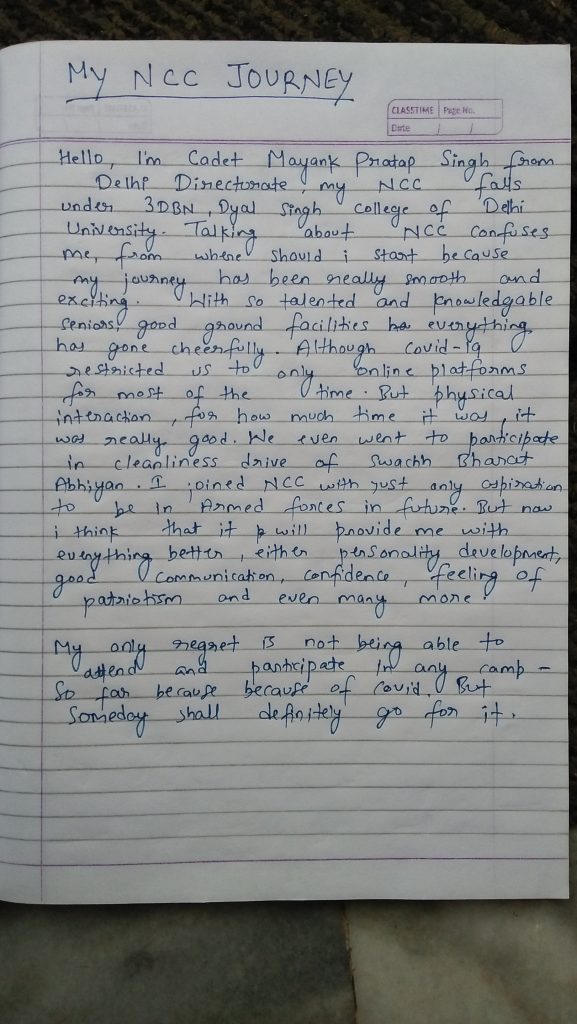 MY NCC JOURNEY
CLASSTIME Page No.
Date / /
Hello, I'm Cadet Mayank Pratap Singh from
Delhi Directorate, my NCC falls
under 3DBN, Dyal Singh college of Delhi
University. Talking about NCC confuses
me, from where should i start because
my journey has been really smooth and
exciting. With so talented and knowledgable
seniors, good ground facilities everything
has gone cheerfully. Although Covid-19
restricted us to only online platforms
for most of the time. But physical
interaction, for how much time it was, it
was really good. We even went to participate
in cleanliness drive of Swachh Bharat
Abhiyan. I joined NCC with just only aspiration
to be in Armed forces in future. But now
i think that it will provide me with
everything better, either personality development,
good communication, confidence, feeling of
patriotism and even many more.
My only regret is not being able to
attend and participate in any camp -
So far because because of Covid. But
Someday shall definitely go for it.